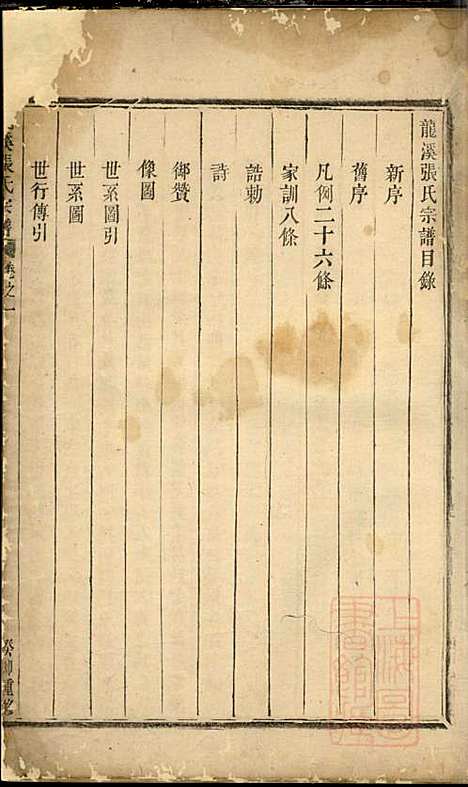 龍溪張氏宗譜目錄
新序
舊序
凡例二十六條
家訓八條
誥勅
詩
御贊
像圖
世系圖引
世系圖
世行傳引
溪張氏宗譜
卷之一
癸卯重